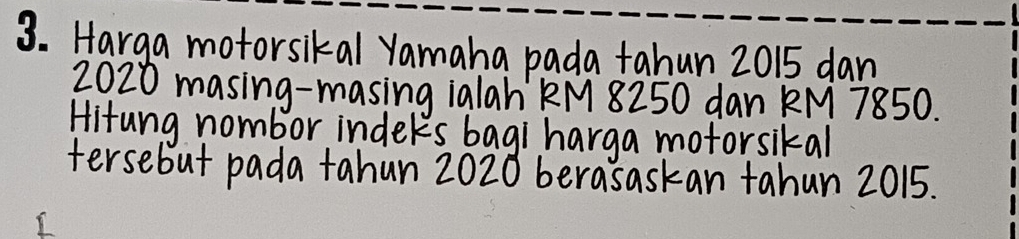 3. Harga motorsikal Yamaha pada tahun 2015 dan
2020 masing-masing ialah RM 8250 dan RM 7850.
Hitung nombor indeks bagi harga motorsikal
tersebut pada tahun 2020 berasaskan tahun 2015.